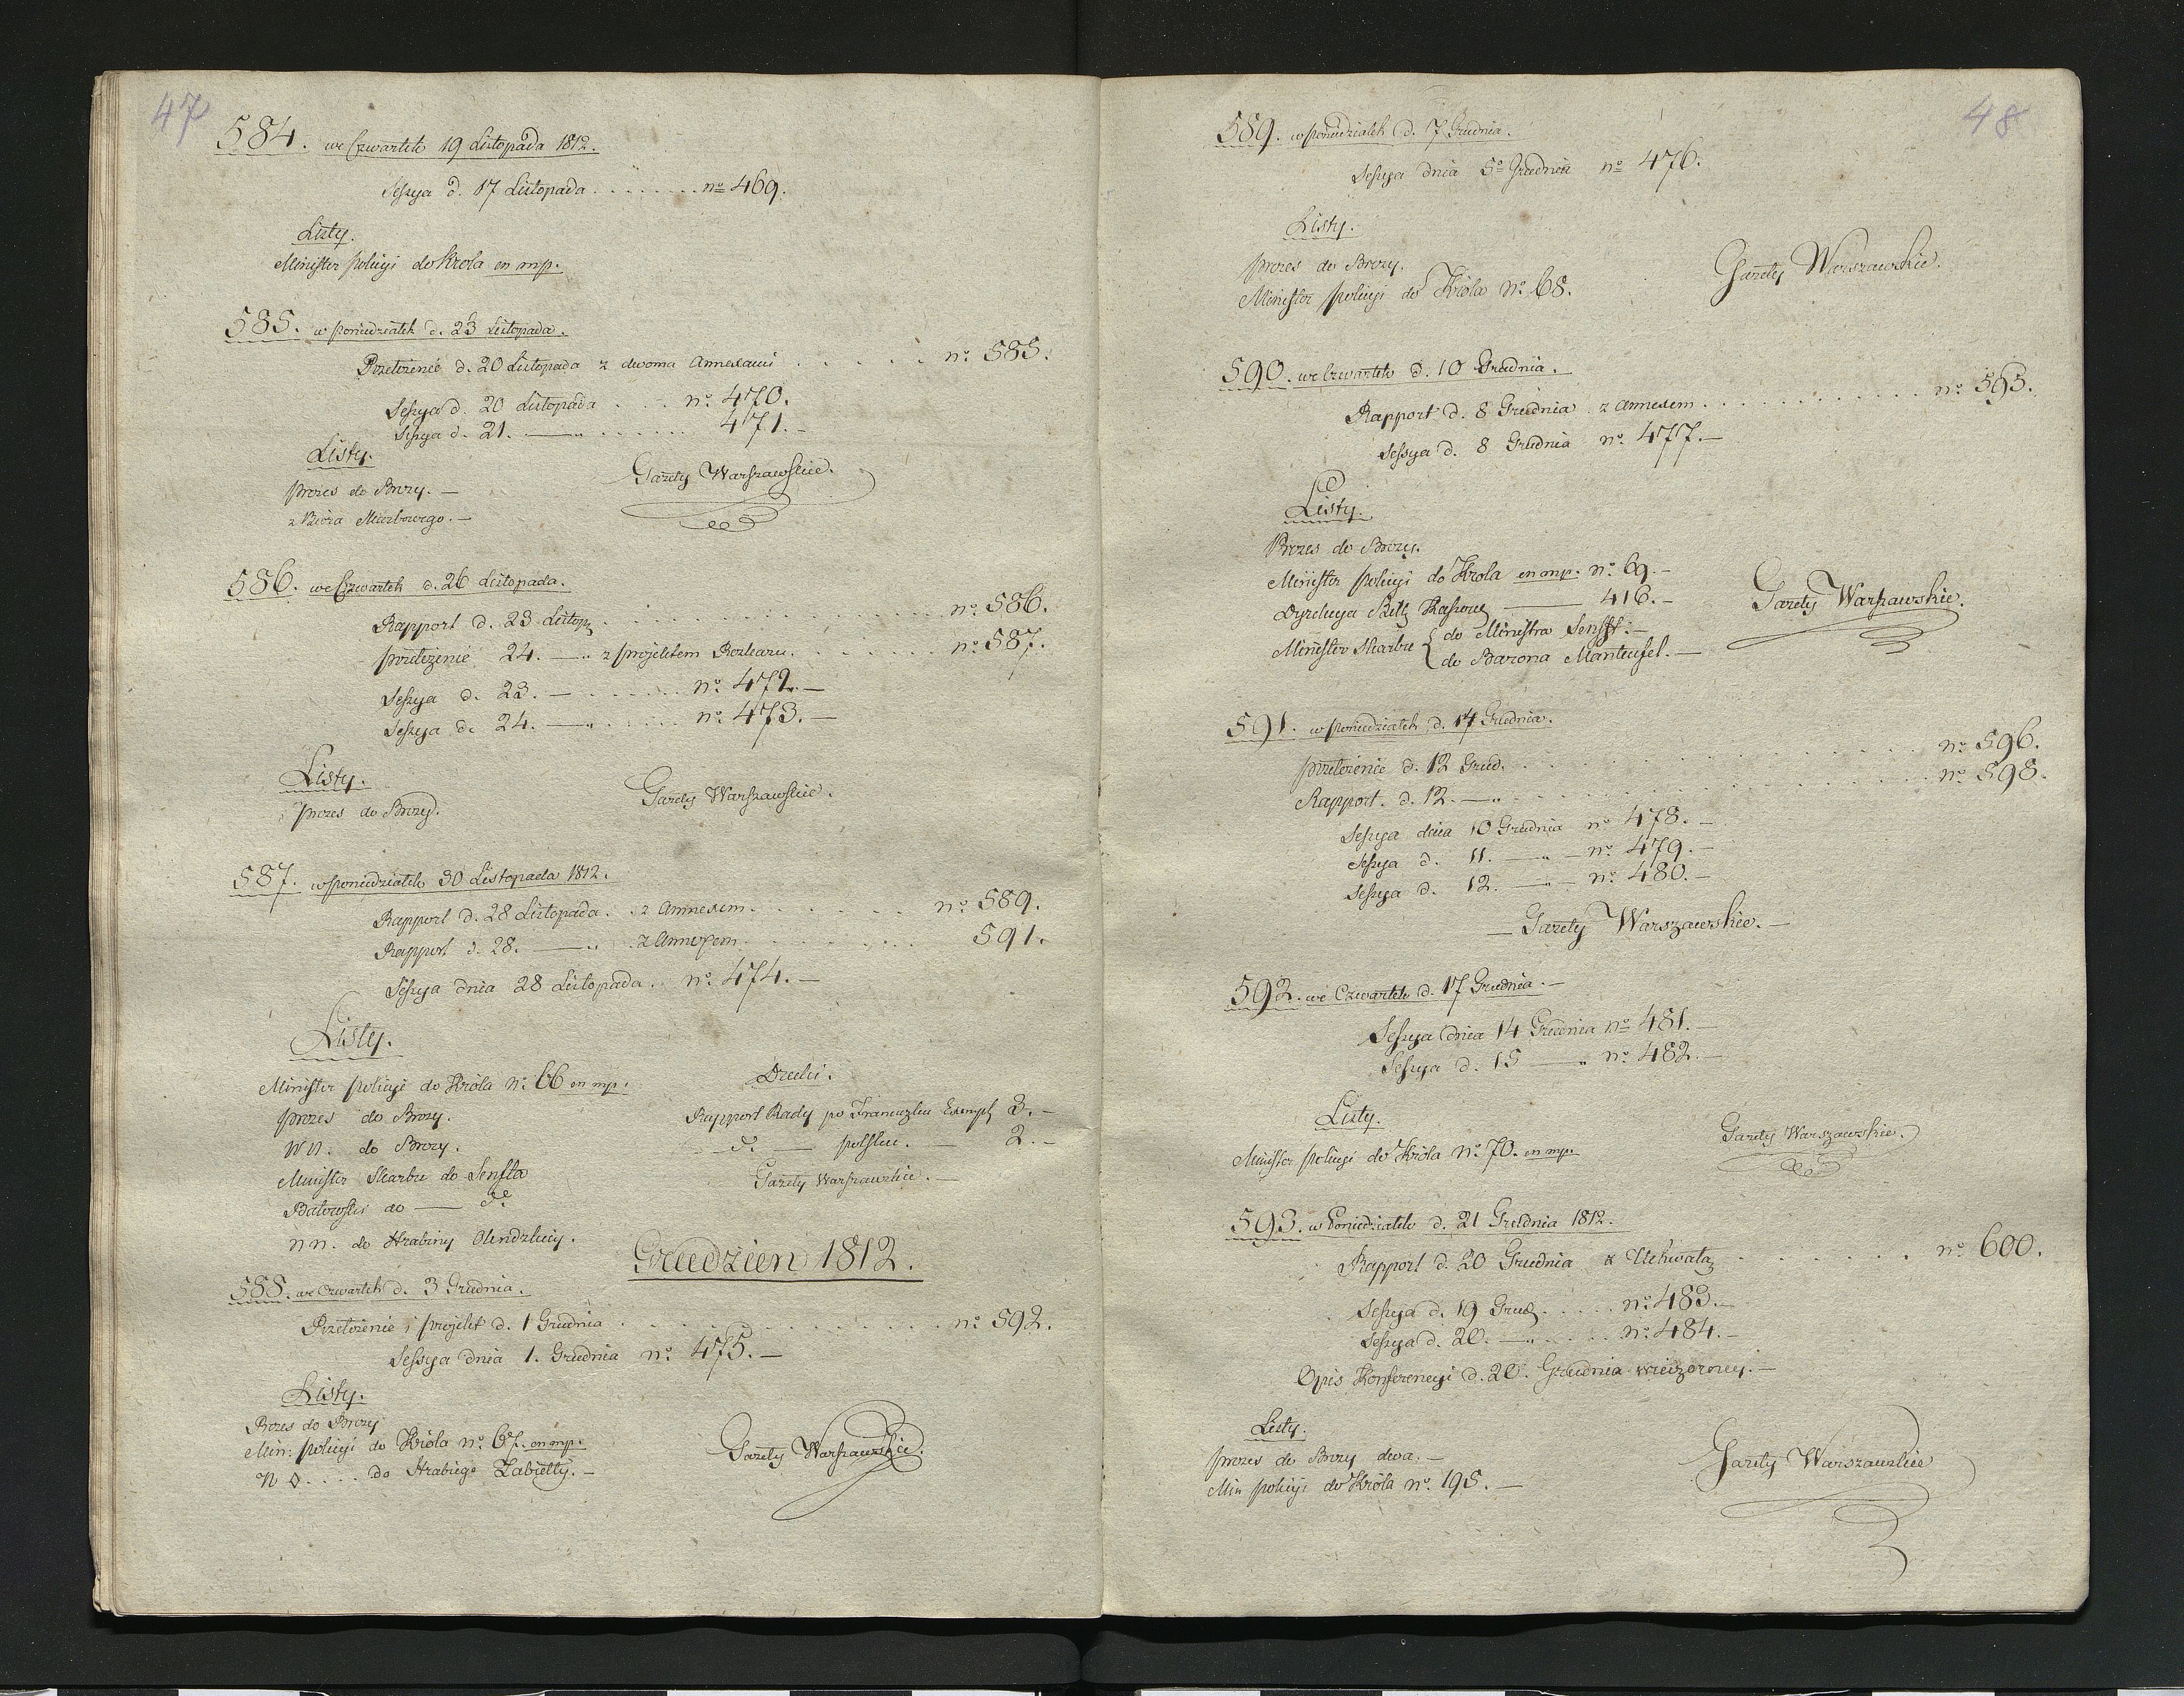 47
584. we Czwartek 19 Listopada 1812.
Sessya d. 17 Listopada . . . . . . . no 469.
Listy.
Minister policyi do Krola en mp.
585. w poniedziałek d. 23 Listopada.
Przełożenie d. 20 Listopada z dwoma Annexami . . . . . no. 585.
Sessya d. 20 Listopada . . . no. 470.
Sessya d. 21. —„ . . . . . . 471. -
Listy.
Prezes do Brezy. —
Gazety Warszawskie.
z Biora Skarbowego. —
586. we Czwartek d. 26 Listopada.
Rapport d. 23 Listop . . . . . . . . . . . . no. 586.
przełożenie 24. —„ z projektem Rozkazu. . . . . . . no. 587.
Sessya d. 23. — . . . . . . no. 472. —
Sessya d. 24. —„ . . . . . no. 473. —
Listy.
Gazety Warszawskie.
Prezes do Brezy.
587. w poniedziałek 30 Listopada 1812.
Rapport d. 28 Listopada. . z Annexem. . . . . . . no. 589.
Rapport d. 28. —„ . z Annexem. . . . . . . . 591.
Sessya dnia 28 Listopada. no. 474. —
Listy.
Minister policyi do Króla no. 66 en mp.
Druki.
prezes do Brezy.
Rapport Rady po Francuzku Exempl 3. -
NN. do Brezy.
do. — polsku. — 2. -
Minister Skarbu do Senfta
Gazety Warszawskie. —
Batowski do — do
NN. do Hrabiny Olendzkiey.
Grudzien 1812.
588. we czwartek d. 3 Grudnia.
Przełożenie i projekt d. 1 Grudnia . . . . . . . . . . . no. 592.
Sessya dnia 1. Grudnia no. 475. —
Listy.
Prezes do Brezy
Min: policyi do Króla no. 67. en mp.
Gazety Warszawskie.
N . . . . do Hrabiego Zabiełły. —
48
589. w poniedziałek d. 7 Grudnia.
Sessya dnia 5o Grudnia no 476.
Listy.
prezes do Brezy.
Gazety Warszawskie.
Minister policyi do Króla no. 68.
590. we Czwartek d. 10 Grudnia.
Rapport d. 8 Grudnia z annexem . . . . . . . . . . . no. 595.
Sessya d. 8 Grudnia no. 477. —
Listy.
Prezes do Brezy.
Minister policyi do Krola en mp. no. 69. -
Gazety Warszawskie.
Dyrekcya — 416. -
Minister Skarbu { do Ministra Senfft. —
do Barona Manteufel. —
591. w poniedziałek d. 14 Grudnia.
przełożenie d. 12 Grud. . . . . . . . . . . . no. 596.
Rapport. d. 12. —„ . . . . . . . . . . . . no. 598.
Sessya dnia 10 Grudnia no 478. —
Sessya d. 11. —„ — no. 479. —
Sessya d. 12. —„ — no. 480. —
— Gazety Warszawskie. —
592. we Czwartek d. 17 Grudnia. —
Sessya dnia 14 Grudnia no 481. —
Sessya d. 15 —„ no. 482. —
Listy.
Gazety Warszawskie.
Minister policyi do Króla no. 70. en mp.
593. w Poniedziałek d. 21 Grudnia 1812.
Rapport d. 20 Grudnia z Uchwałą . . . . . . . . no. 600.
Sessya d. 19 Grud. . . . . no. 483. —
Sessya d. 20. —„ . . . . no. 484. —
Opis Konferencyi d. 20. Grudnia wieczorney. —
Listy.
prezes do Brezy dwa. —
Gazety Warszawskie
Min policyi do Króla no. 195. —